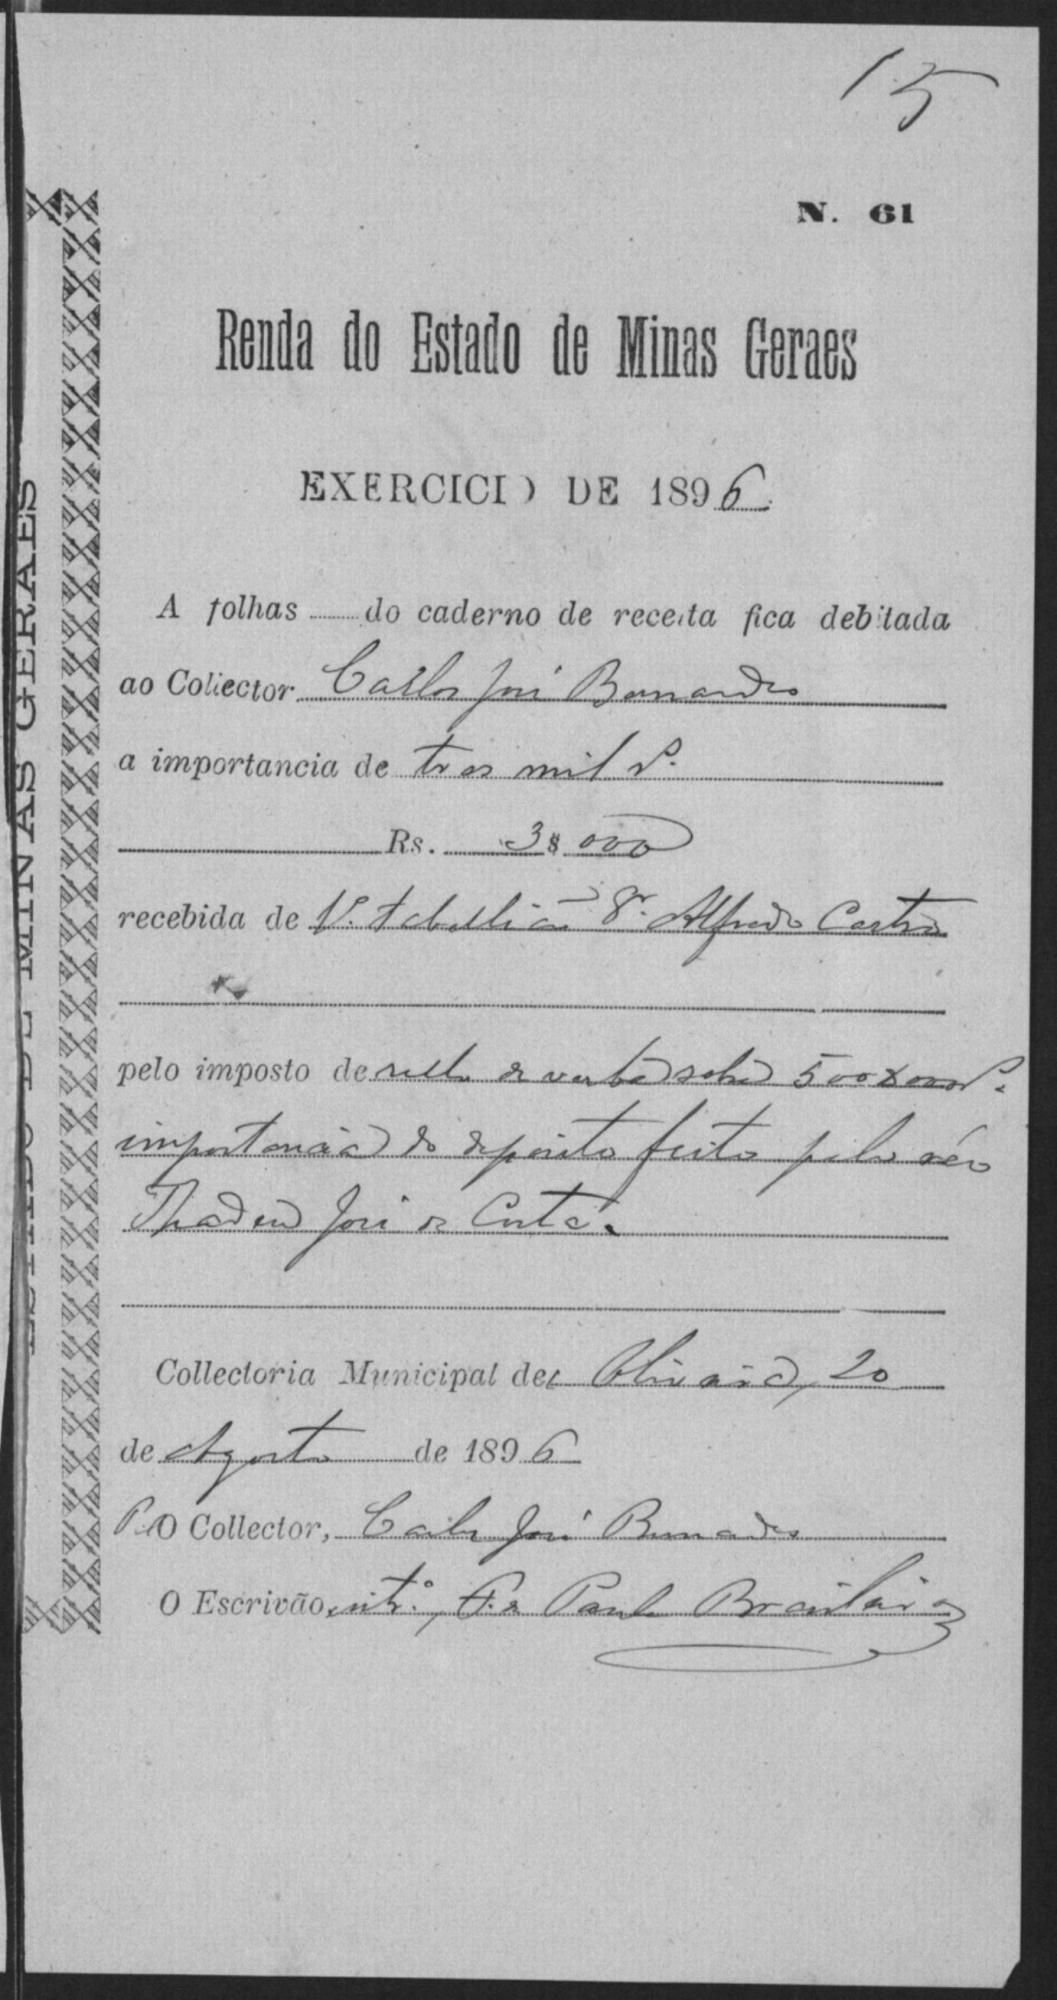 15
N. 61
Renda do Estado de Minas Geraes
EXERCICIO DE 1896
A folhas do caderno de receita fica debitada
ao Collector Carlos José Bernardes
a importancia de tres mil rs.
Rs. 3$000
recebida de 1º. tabellião Alfredo Castro
pelo imposto de sello de verba sobre 500$000 rs.
importancia do deposito feito pelo réo
Thadeu José da Costa.
Collectoria Municipal de Oliveira, 20
de Agosto de 1896
O Collector, Carlos José Bernardes
O Escrivão, intº., F. de Paula Brasileiro
ESTADO DE MINAS GERAES